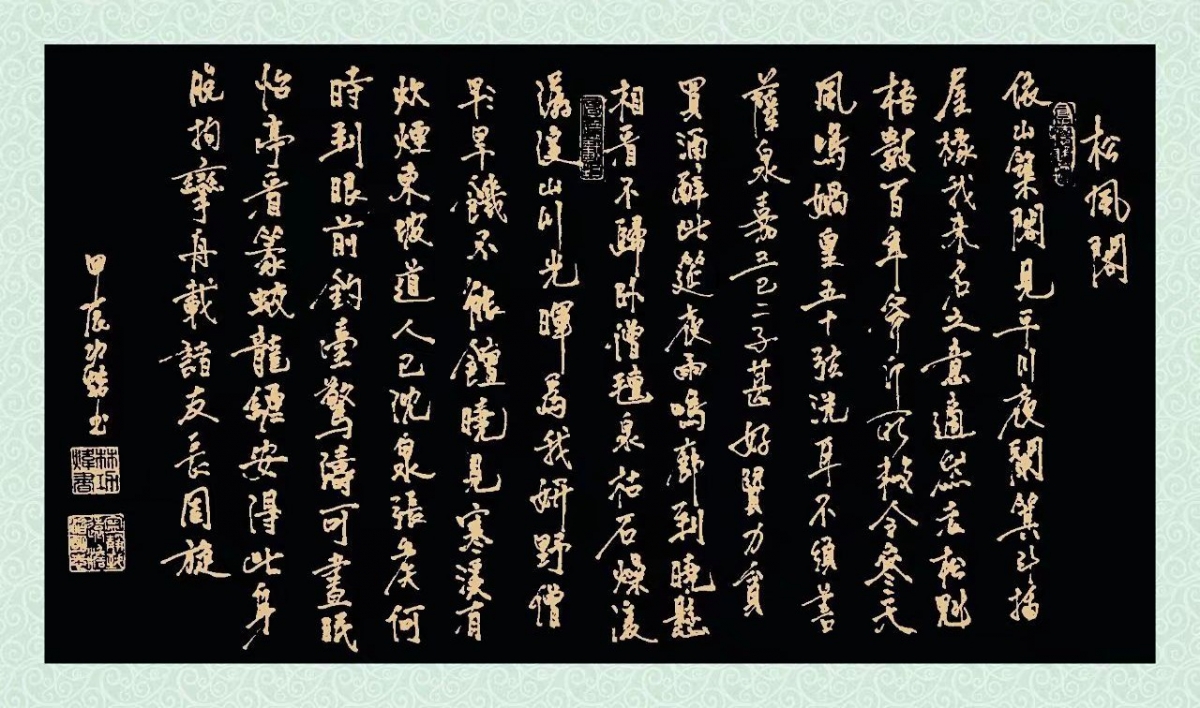 松風閣
依山築閣見平川夜闌箕斗插
屋椽我来名之意適然老松魁
梧數百年斧斤所赦今參天
風鳴媧皇五十弦洗耳不須菩
薩泉嘉三二子甚好賢力貧
買酒醉此筵夜雨鳴廊到曉懸
相看不歸卧僧氊泉枯石燥復
潺湲山川光暉為我妍野僧
早旱饑不能饘曉見寒溪有
炊煙東坡道人已沈泉張侯何
時到眼前釣臺驚濤可晝眠
怡亭看篆蛟龍纏安得此身
脫拘攣舟載諸友長周旋
甲辰功煒書
林功煒書